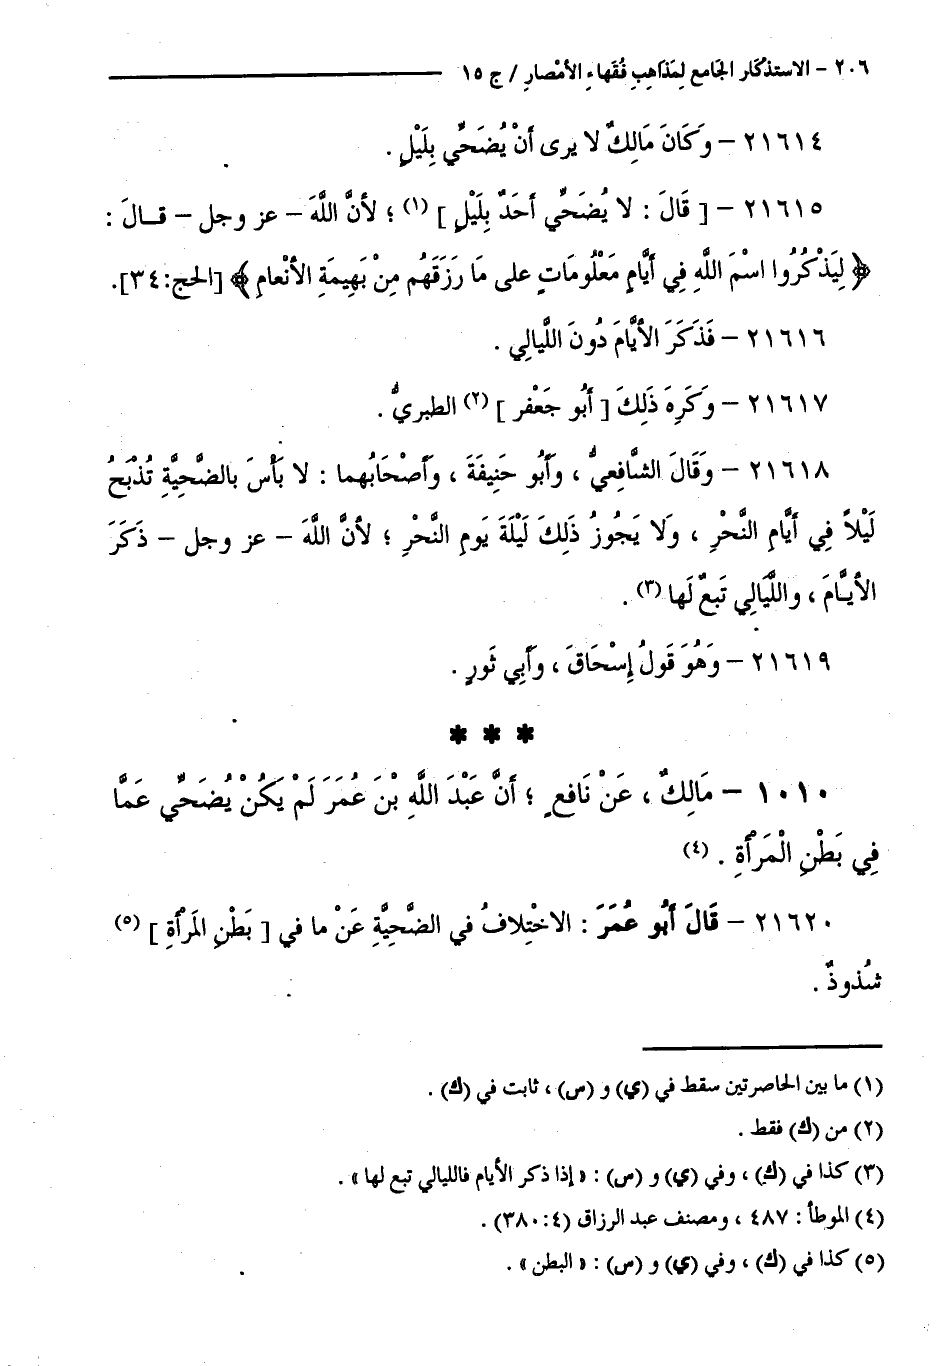 ٢٠٦ – الاستذكار الجامع لمذاهب فُقَهاء الأمْصار / ج ١٥
٢١٦١٤ – وَكَانَ مَالِكٌ لا يرى أنْ يُضَحِّي بِلَيْلٍ .
٢١٦١٥ – [ قَالَ : لا يُضَحِّي أحَدٌ بِلَيْلٍ ] (١) ؛ لأنَّ اللَّهَ – عز وجل – قــالَ :
﴿ لِيَذْكُرُوا اسْمَ اللَّهِ فِي أيَّامٍ مَعْلُومَاتٍ على مَا رَزَقَهُم مِنْ بَهِيمَةِ الأنْعامِ ﴾ [الحج:٣٤].
٢١٦١٦ – فَذَكَرَ الأيَّامَ دُونَ اللَّيالِي .
٢١٦١٧ – وَكَرِهَ ذَلِكَ [ أبُو جَعْفر ] (٢) الطبريُّ .
٢١٦١٨ – وَقَالَ الشَّافِعيُّ ، وَأبُو حَنِيفَةَ ، وَأصْحَابُهما : لا بَأْسَ بالضَّحِيَّةِ تُذْبَحُ
لَيْلاً فِي أيَّامِ النَّحْرِ ، وَلا يَجُوزُ ذَلِكَ لَيْلَةَ يَومِ النَّحْرِ ؛ لأنَّ اللَّهَ – عز وجل – ذكَرَ
الأيـَّامَ ، واللَّيَالِي تَبعٌ لَها (٣) .
٢١٦١٩ – وَهُوَ قَولُ إسْحَاقَ ، وَأبِي ثَورٍ .
* * *
١٠١٠ – مَالِكٌ ، عَنْ نَافِعٍ ؛ أنَّ عَبْدَ اللَّهِ بْنَ عُمَرَ لَمْ يَكُنْ يُضَحِّي عَمَّا
فِي بَطْنِ الْمَرْأةِ . (٤)
٢١٦٢٠ – قَالَ أبُو عُمَرَ : الاخْتِلافُ في الضَّحِيَّةِ عَنْ ما في [ بَطْنِ المَرْأةِ ] (٥)
شذُوذٌ .
(١) ما بين الحاصرتين سقط في (ي) و (س) ، ثابت في (ك) .
(٢) من (ك) فقط .
(٣) كذا في (ك) ، وفي (ي) و (س) : « إذا ذكر الأيام فالليالي تبع لها » .
(٤) الموطأ : ٤٨٧ ، ومصنف عبد الرزاق (٤:٣٨٠) .
(٥) كذا في (ك) ، وفي (ي) و (س) : « البطن » .